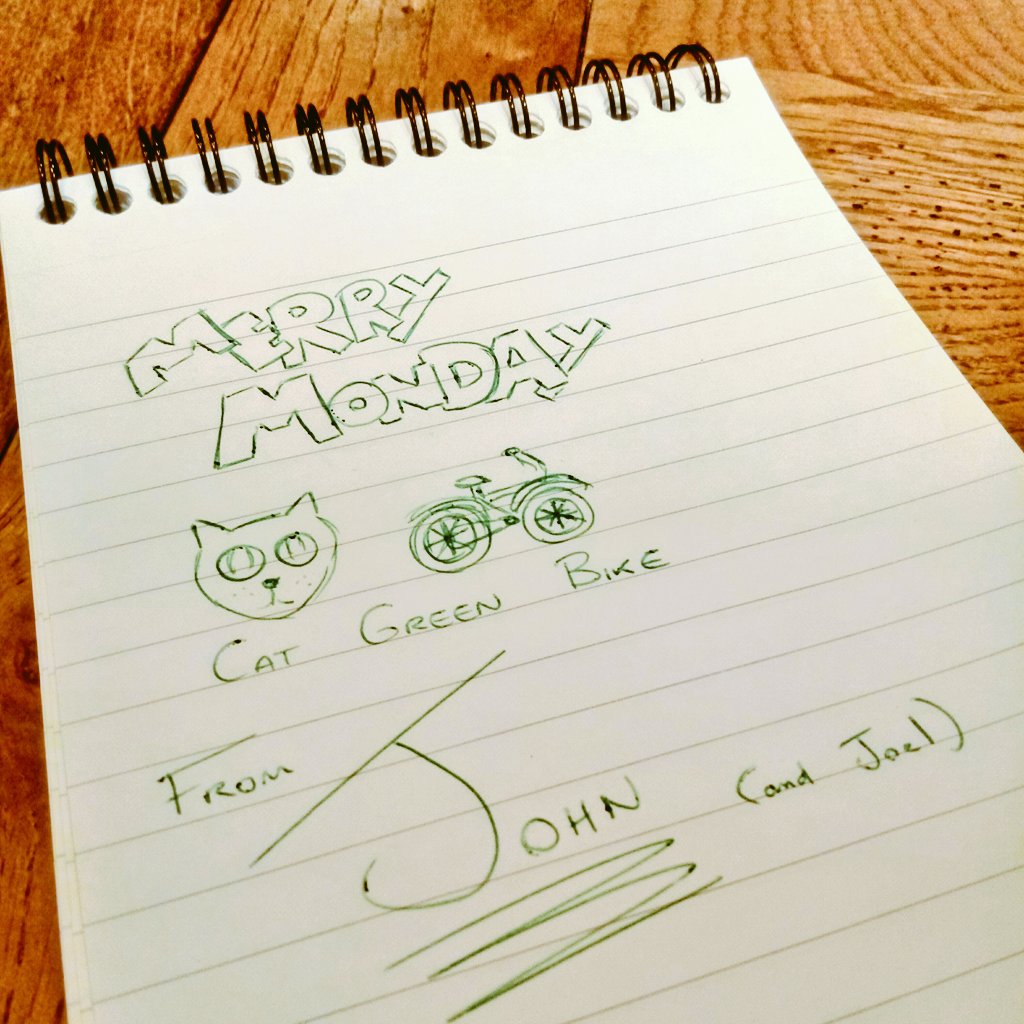 MERRY
MONDAY
CAT GREEN BIKE
FROM JOHN (and Joel)